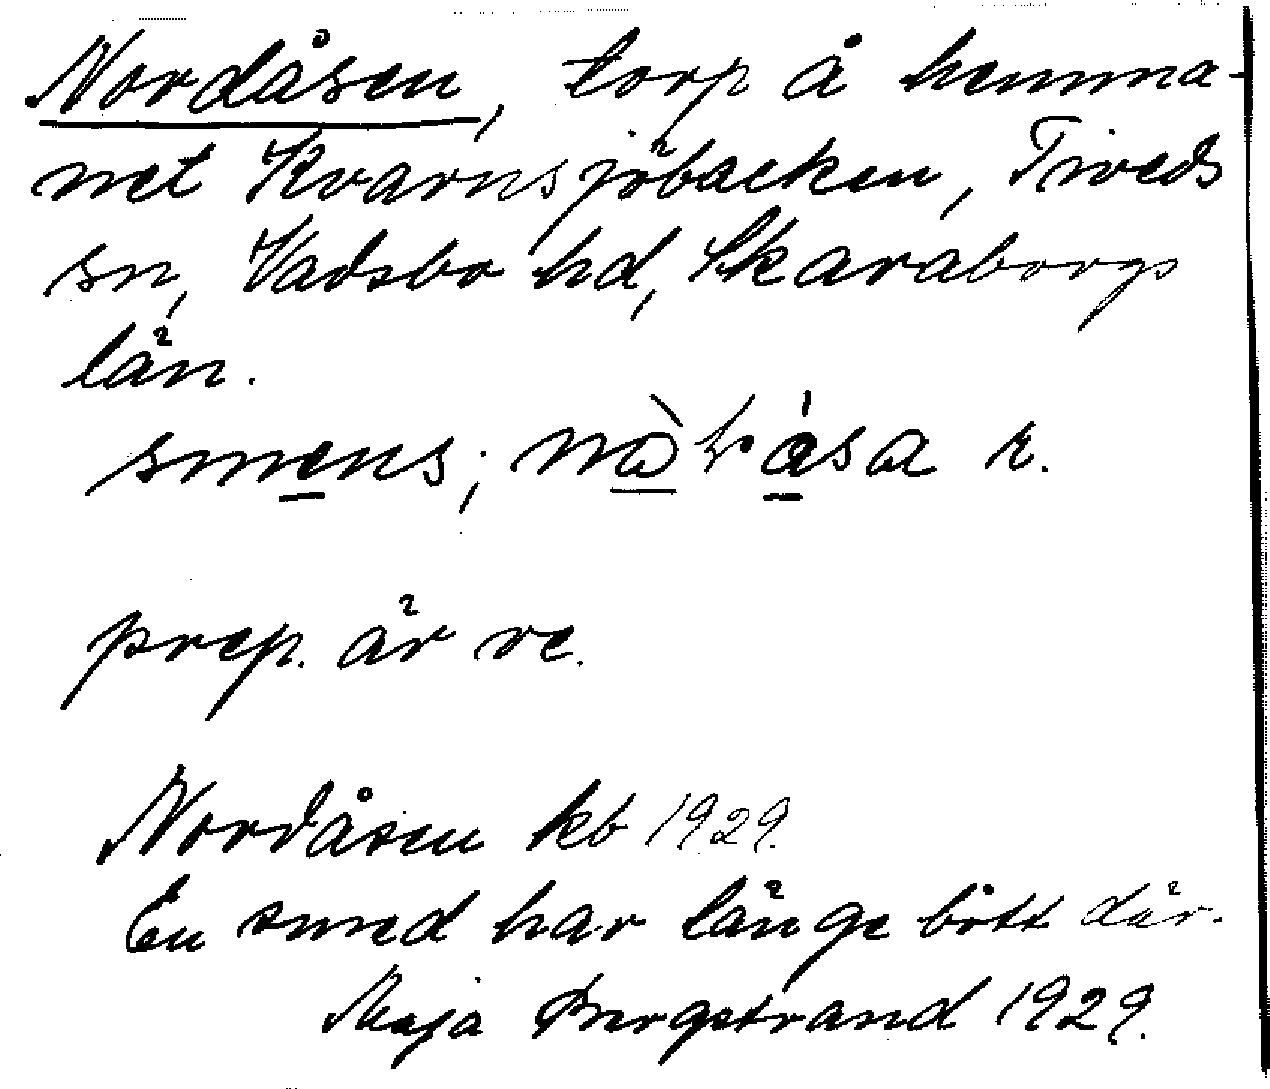 Nordåsen, torp å hemma-
net Kvarnsjöbacken, Tiveds
sn, Vadsbo hd, Skaraborgs
län.
smens; r.
prep. är ve.
Nordåsen kb 1929.
En smed har länge bott där.
Maja Bergstrand 1929.